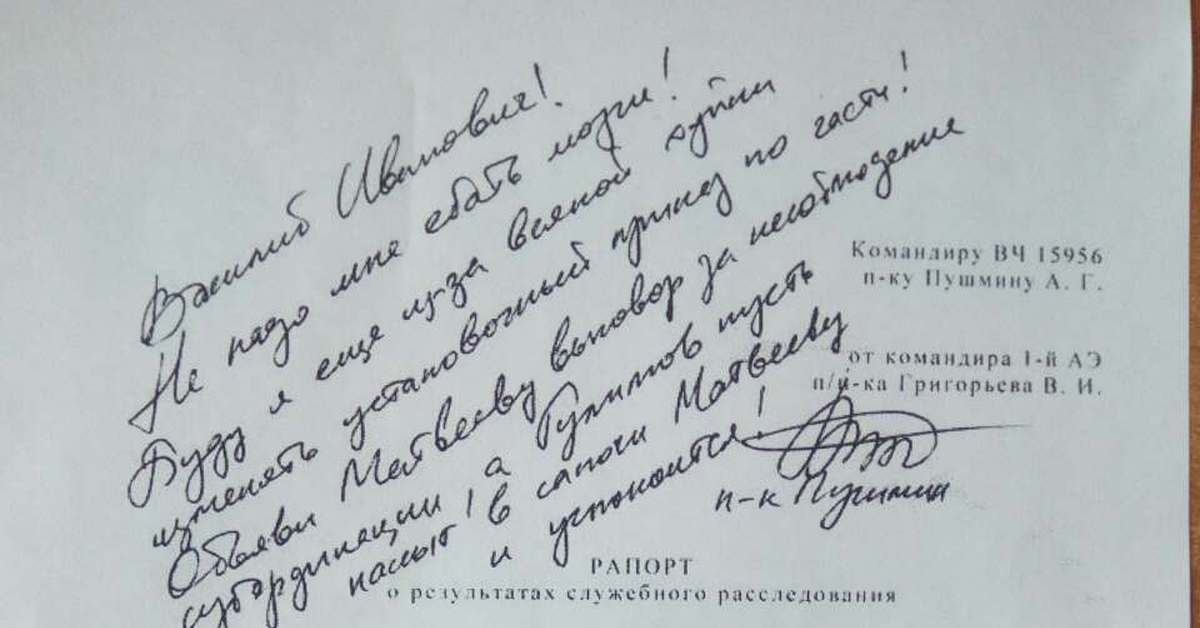 Василий Иванович!
Не надо мне ебать мозги!
Буду я еще из-за всякой хуйни
изменять установочный приказ по части!
Объяви Матвееву выговор за несоблюдение
субординации, а Гулимов пусть
нассыт в сапоги Матвееву
и успокоится!
п-к Пушмин
Командиру ВЧ 15956
п-ку Пушмину А. Г.
от командира 1-й АЭ
п/п-ка Григорьева В. И.
РАПОРТ
о результатах служебного расследования